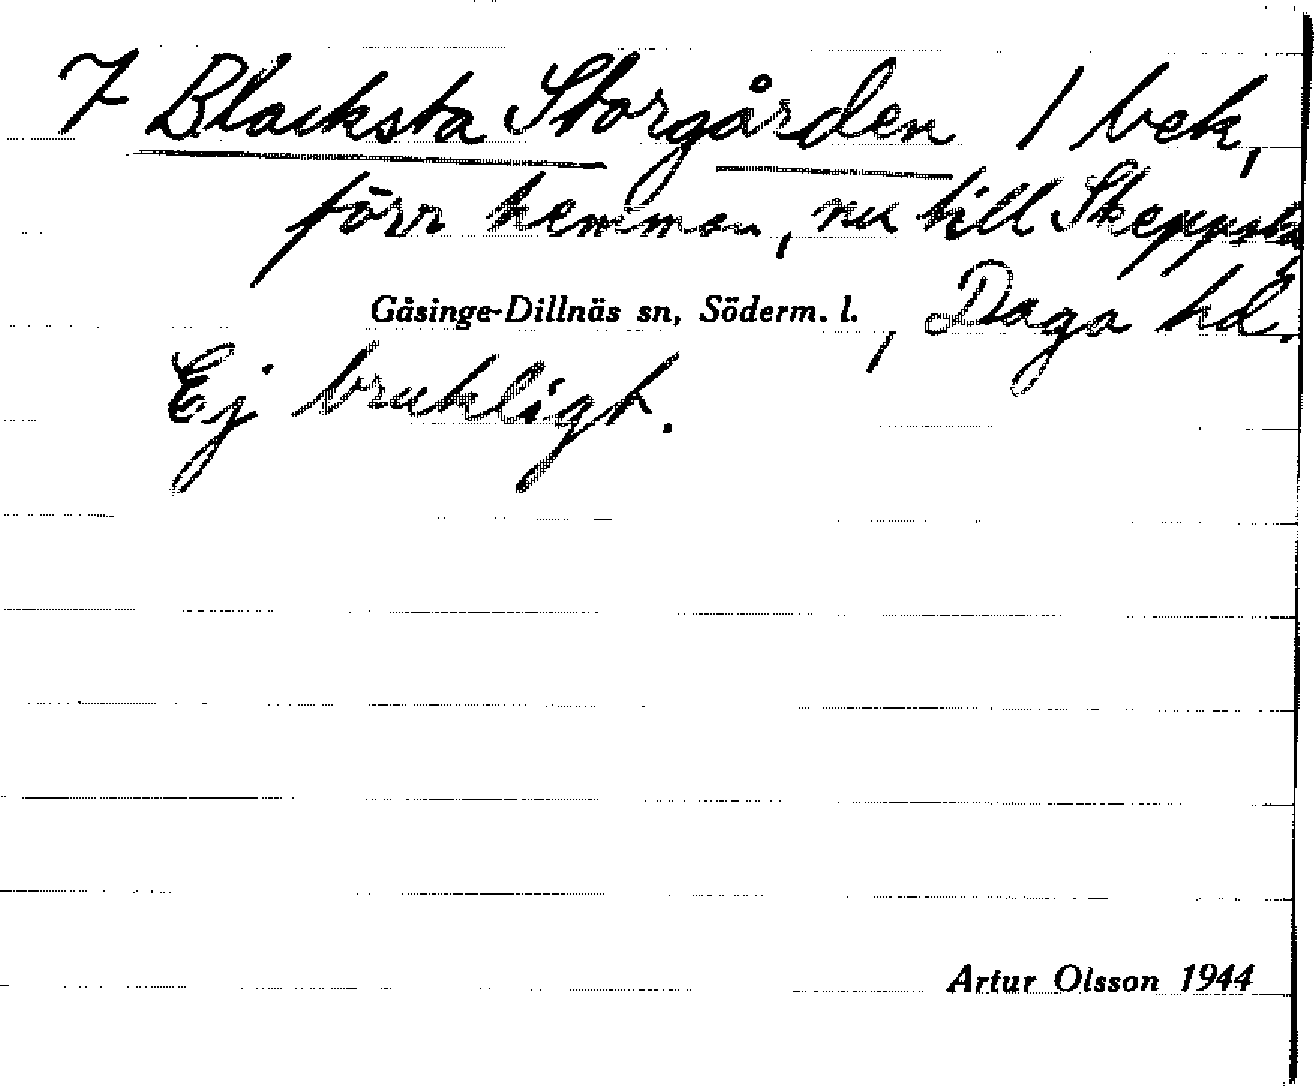 7 Blacksta Storgården 1 bek,
förr hemman, nu till Skeppsta
Gåsinge-Dillnäs sn, Söderm. l., Daga hd.
Ej brukligt.
Artur Olsson 1944